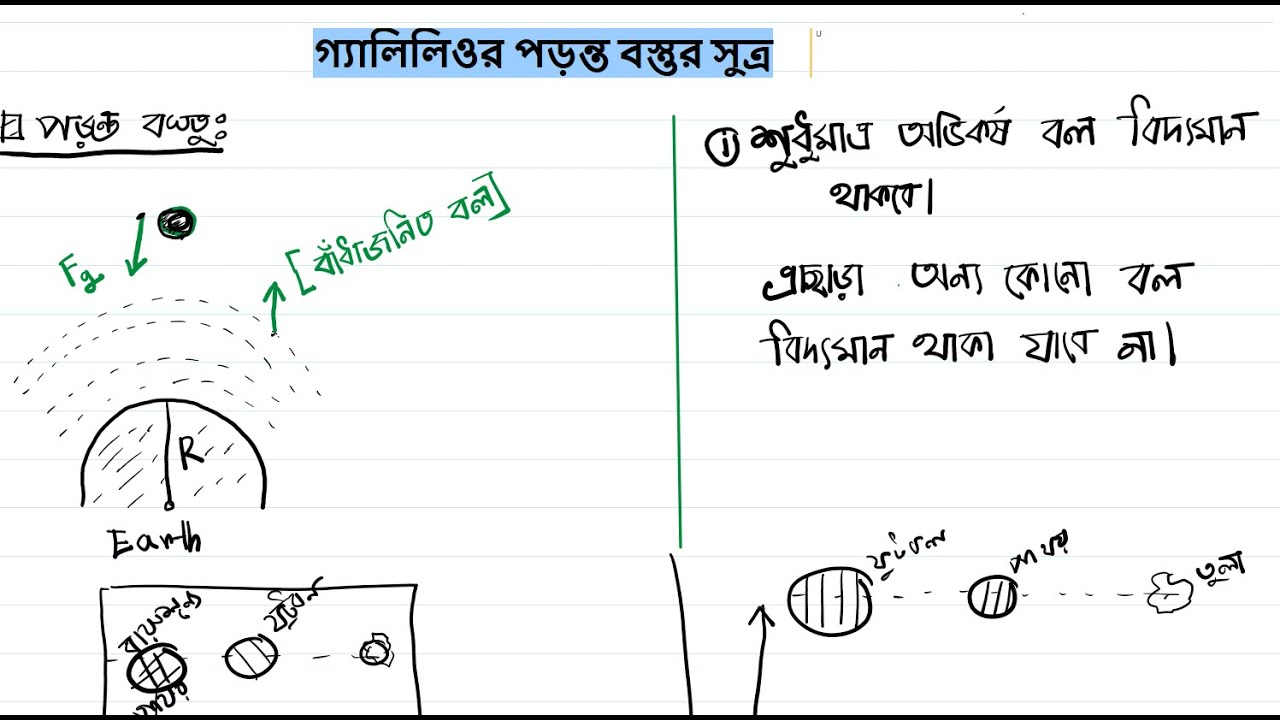 গ্যালিলিওর পড়ন্ত বস্তুর সুত্র
পড়ন্ত বস্তু:
Fg
[বাঁধাজনিত বল]
R
Earth
ফুটবল
পাথর
i শুধুমাত্র অভিকর্ষ বল বিদ্যমান
থাকবে।
এছাড়া অন্য কোনো বল
বিদ্যমান থাকা যাবে না।
ফুটবল
পাথর
তুলা